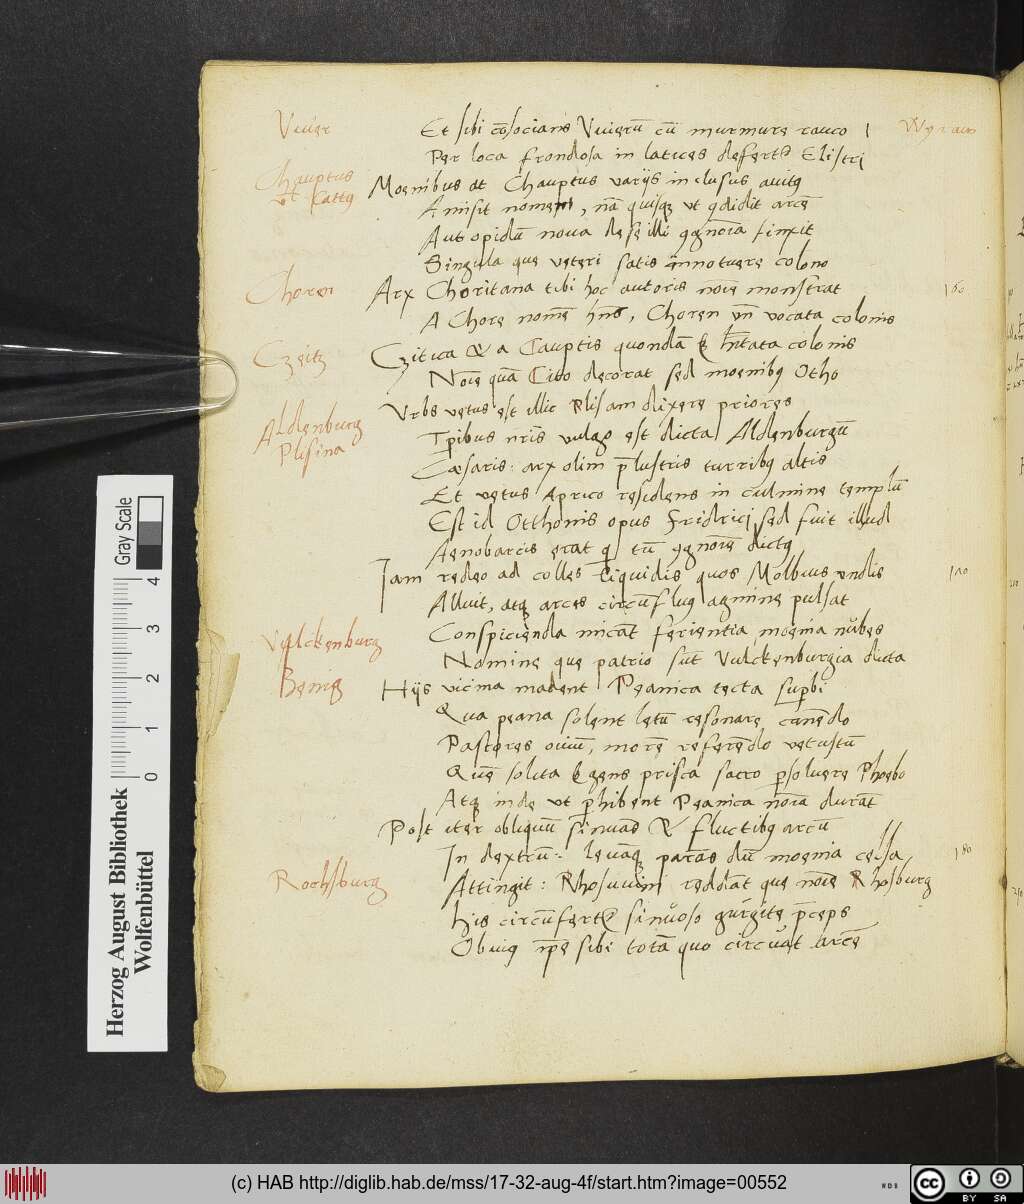 Vuier
Et sibi cōsocians Vuierū cū murmure rauco
Wyraw
Per loca frondosa in latices defert Elistri
Chauptus
vt Cattꝰ
Moenibus at Chauptus varijs inclusus auitꝰ
Amisit nomen, nā quisqꝫ vt ꝯdidit arcē
Aut opidū noua de se illi ꝯgnoīa finxit
Singula que veteri satis innotuere colono
Choren
Arx Choritana tibi hoc autoris noīe monstrat
160
A Chore nomē hn̄s, Choren vn̄ vocata colonis
Czeitz
Czitica & a Cauptis quondā hītata colonis
Noīe quā Cito decorat sed moenibꝰ Otho
Aldenburg
Plisina
Vrbs vetus est illic Plisam dixere priores
Tp̄ibus nr̄is vulgo est dicta Aldenburgū
Caesaris: arx olim p̄lustris turribꝰ altis
Et vetus aprico residens in culmine templū
Est id Otthonis opus Fridrici sed fuit illud
Aenobarcis erat q tū ꝯgnoīe dictꝰ
Iam redeo ad colles liquidis quos Molbius vndis
170
Alluit, atqꝫ arces circūfluꝰ agmine pulsat
Conspiciēda micāt ferientia moenia nubes
Vulckenburg
Nomine que patrio sūt Vulckenburgia dicta
Benig
Hijs vicina madent Peanica tecta supbi
Qua peana solent letū resonare canēdo
Pastores ouiū, morē referēdo vetustū
Quē solita gens prisca sacro psoluere Phoebo
Atqꝫ inde vt phibent Peanica noīa durāt
Post iter obliquū sinuās & fluctibꝰ arcū
In dextrū: leuāqꝫ parās dū moenia celsa
180
Rochsburg
Attingit: Rhosuuini reddāt que noīe Rhosburg
his circūfert sinuoso gurgite p̄ceps
Obuiꝰ ip̄e sibi totā quo circuāt arcē
Herzog August Bibliothek
Wolfenbüttel
0 1 2 3 4
Gray Scale
(c) HAB http://diglib.hab.de/mss/17-32-aug-4f/start.htm?image=00552
WDB
cc BY SA